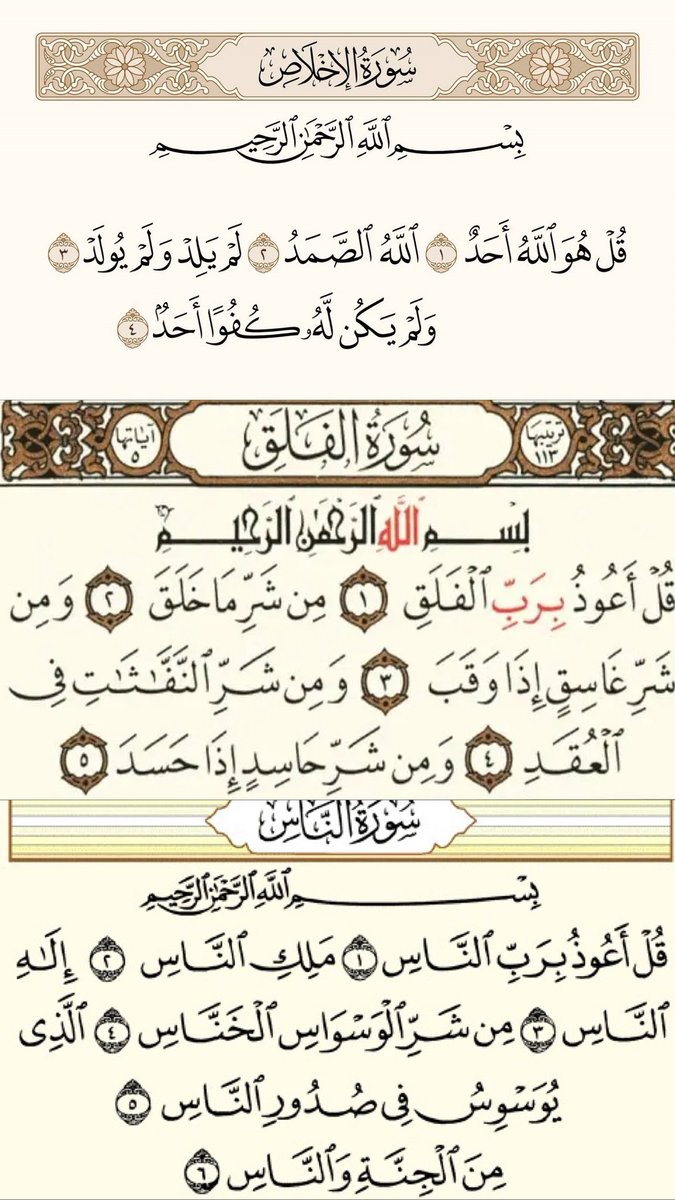 سُورَةُ الإِخْلَاصِ
بِسْمِ ٱللَّهِ ٱلرَّحْمَٰنِ ٱلرَّحِيمِ
قُلْ هُوَ ٱللَّهُ أَحَدٌ ١ ٱللَّهُ ٱلصَّمَدُ ٢ لَمْ يَلِدْ وَلَمْ يُولَدْ ٣
وَلَمْ يَكُن لَّهُۥ كُفُوًا أَحَدٌۢ ٤
ترتيبها ١١٣ سُورَةُ الْفَلَقِ آياتها ٥
بِسْمِ ٱللَّهِ ٱلرَّحْمَٰنِ ٱلرَّحِيمِ
قُلْ أَعُوذُ بِرَبِّ ٱلْفَلَقِ ١ مِن شَرِّ مَا خَلَقَ ٢ وَمِن
شَرِّ غَاسِقٍ إِذَا وَقَبَ ٣ وَمِن شَرِّ ٱلنَّفَّٰثَٰتِ فِى
ٱلْعُقَدِ ٤ وَمِن شَرِّ حَاسِدٍ إِذَا حَسَدَ ٥
سُورَةُ النَّاسِ
بِسْمِ ٱللَّهِ ٱلرَّحْمَٰنِ ٱلرَّحِيمِ
قُلْ أَعُوذُ بِرَبِّ ٱلنَّاسِ ١ مَلِكِ ٱلنَّاسِ ٢ إِلَٰهِ
ٱلنَّاسِ ٣ مِن شَرِّ ٱلْوَسْوَاسِ ٱلْخَنَّاسِ ٤ ٱلَّذِى
يُوَسْوِسُ فِى صُدُورِ ٱلنَّاسِ ٥
مِنَ ٱلْجِنَّةِ وَٱلنَّاسِ ٦